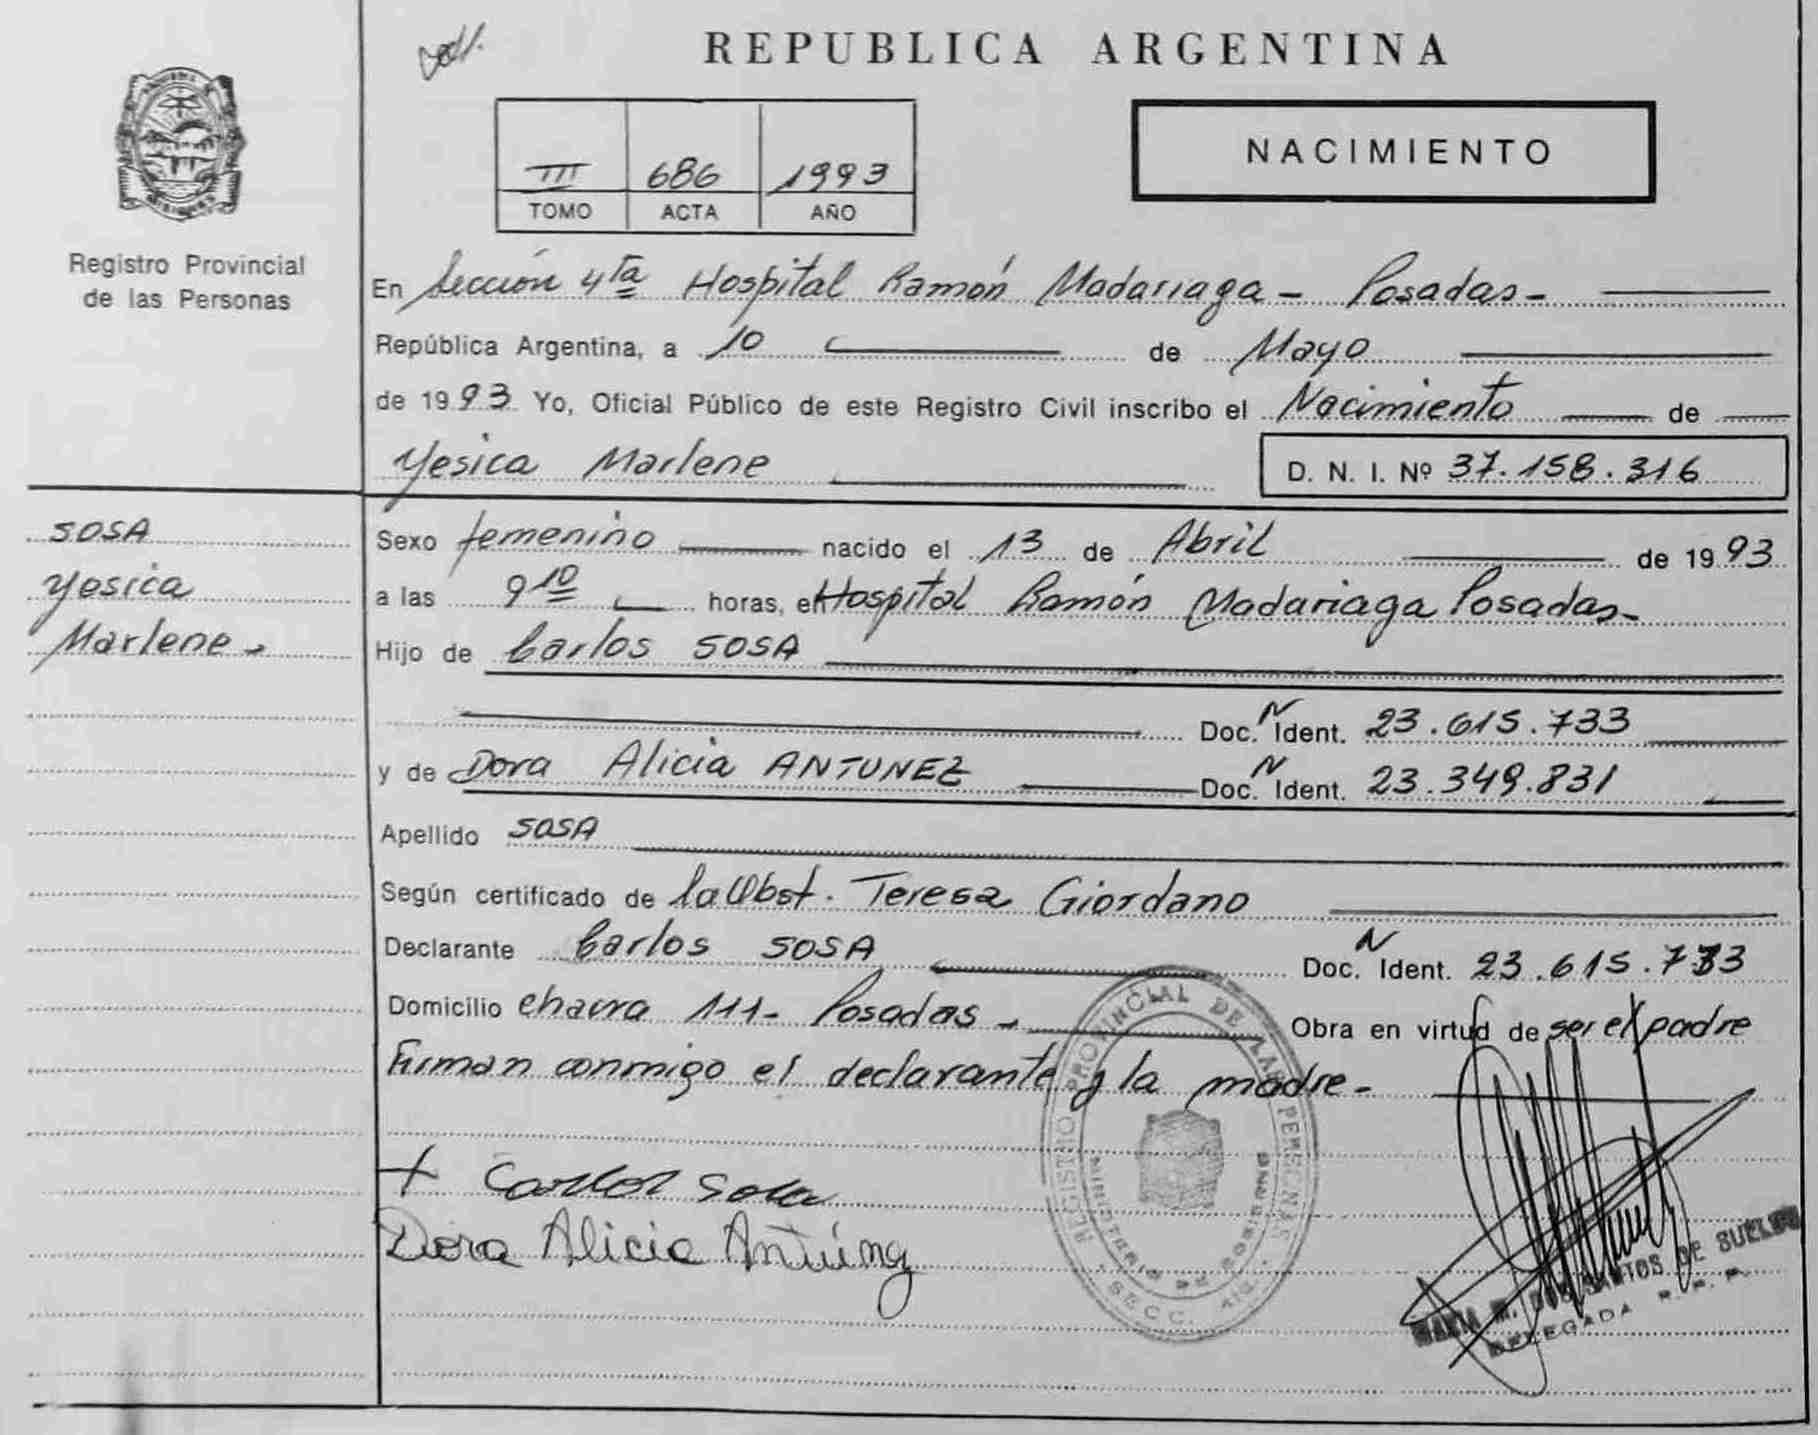 REPUBLICA ARGENTINA
III 686 1993
TOMO ACTA AÑO
NACIMIENTO
Registro Provincial
de las Personas
En Sección 4ta Hospital Ramón Madariaga - Posadas -
República Argentina, a 10 de Mayo
de 1993 Yo, Oficial Público de este Registro Civil inscribo el Nacimiento de
Yesica Marlene D. N. I. Nº 37.158.316
SOSA
Yesica
Marlene -
Sexo femenino nacido el 13 de Abril de 1993
a las 9 10 horas, en Hospital Ramón Madariaga Posadas -
Hijo de Carlos SOSA
Doc. N Ident. 23.615.733
y de Dora Alicia ANTUNEZ Doc. N Ident. 23.349.831
Apellido SOSA
Según certificado de la Obst. Teresa Giordano
Declarante Carlos SOSA Doc. N Ident. 23.615.733
Domicilio chacra 111 - Posadas - Obra en virtud de ser el padre
Firman conmigo el declarante y la madre -
+ Carlos Sosa
Dora Alicia Antúnez
REGISTRO PROVINCIAL DE LAS PERSONAS
PROVINCIA DE MISIONES
SECC. 4ta.
MARIA M. DOS SANTOS DE SUELDO
DELEGADA R. P. P.